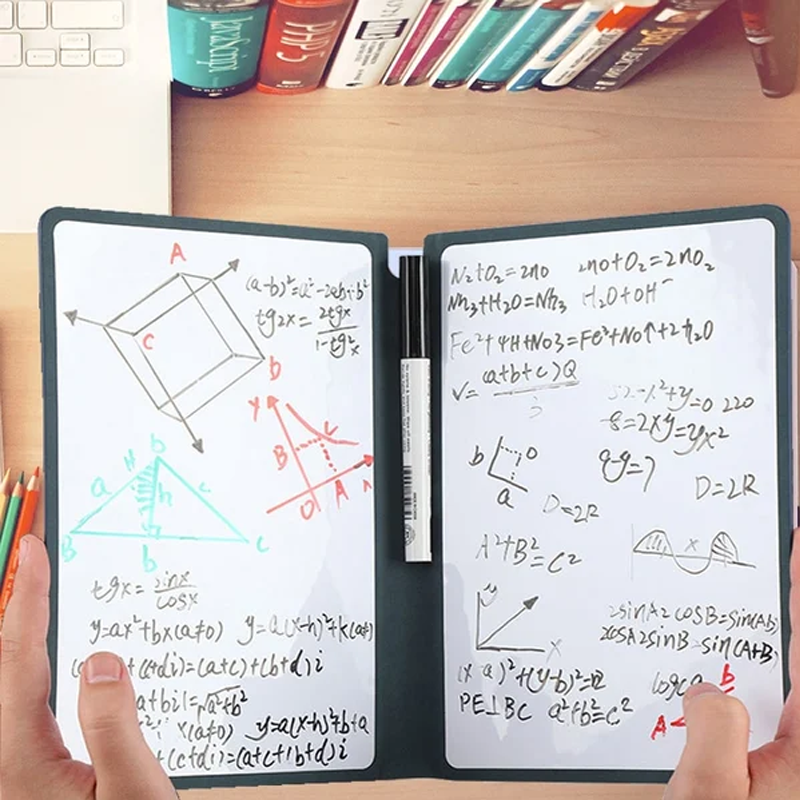 JavaScript
A
(a-b)²=a²-2ab+b²
tg2x = 2tgx
1-tg²x
C
b
Y
B
C
O
A
b
H
a
h
c
B
b
C
tgx = sinx
cosx
y=ax²+bx(a≠0) y=a(x-h)²+k(a≠
+(c+di)=(a+c)+(b+d)i
a+bi|=√a²+b²
x(a≠0) y=a(x-h)²+b+a
+(c+di)=(a+c+(b+d)i
N₂+O₂=2no 2no+O₂=2nO₂
Nh₃+H₂O=Nh₃ H₂O+OH⁻
Fe²+4H+No3=Fe³+No↑+2h₂O
V= (a+b+c)Q
3
52-x²+y=0 220
-8=2xy=yx²
b
O
a
q-y=7
D=2R
D=2R
A²+B²=C²
x
y
x
2sinA2cosB=sin(Ab)
2cosA2sinB=sin(A+B)
(x-a)²+(y-b)²=12
PE⊥BC a²+b²=c²
logca
b
A